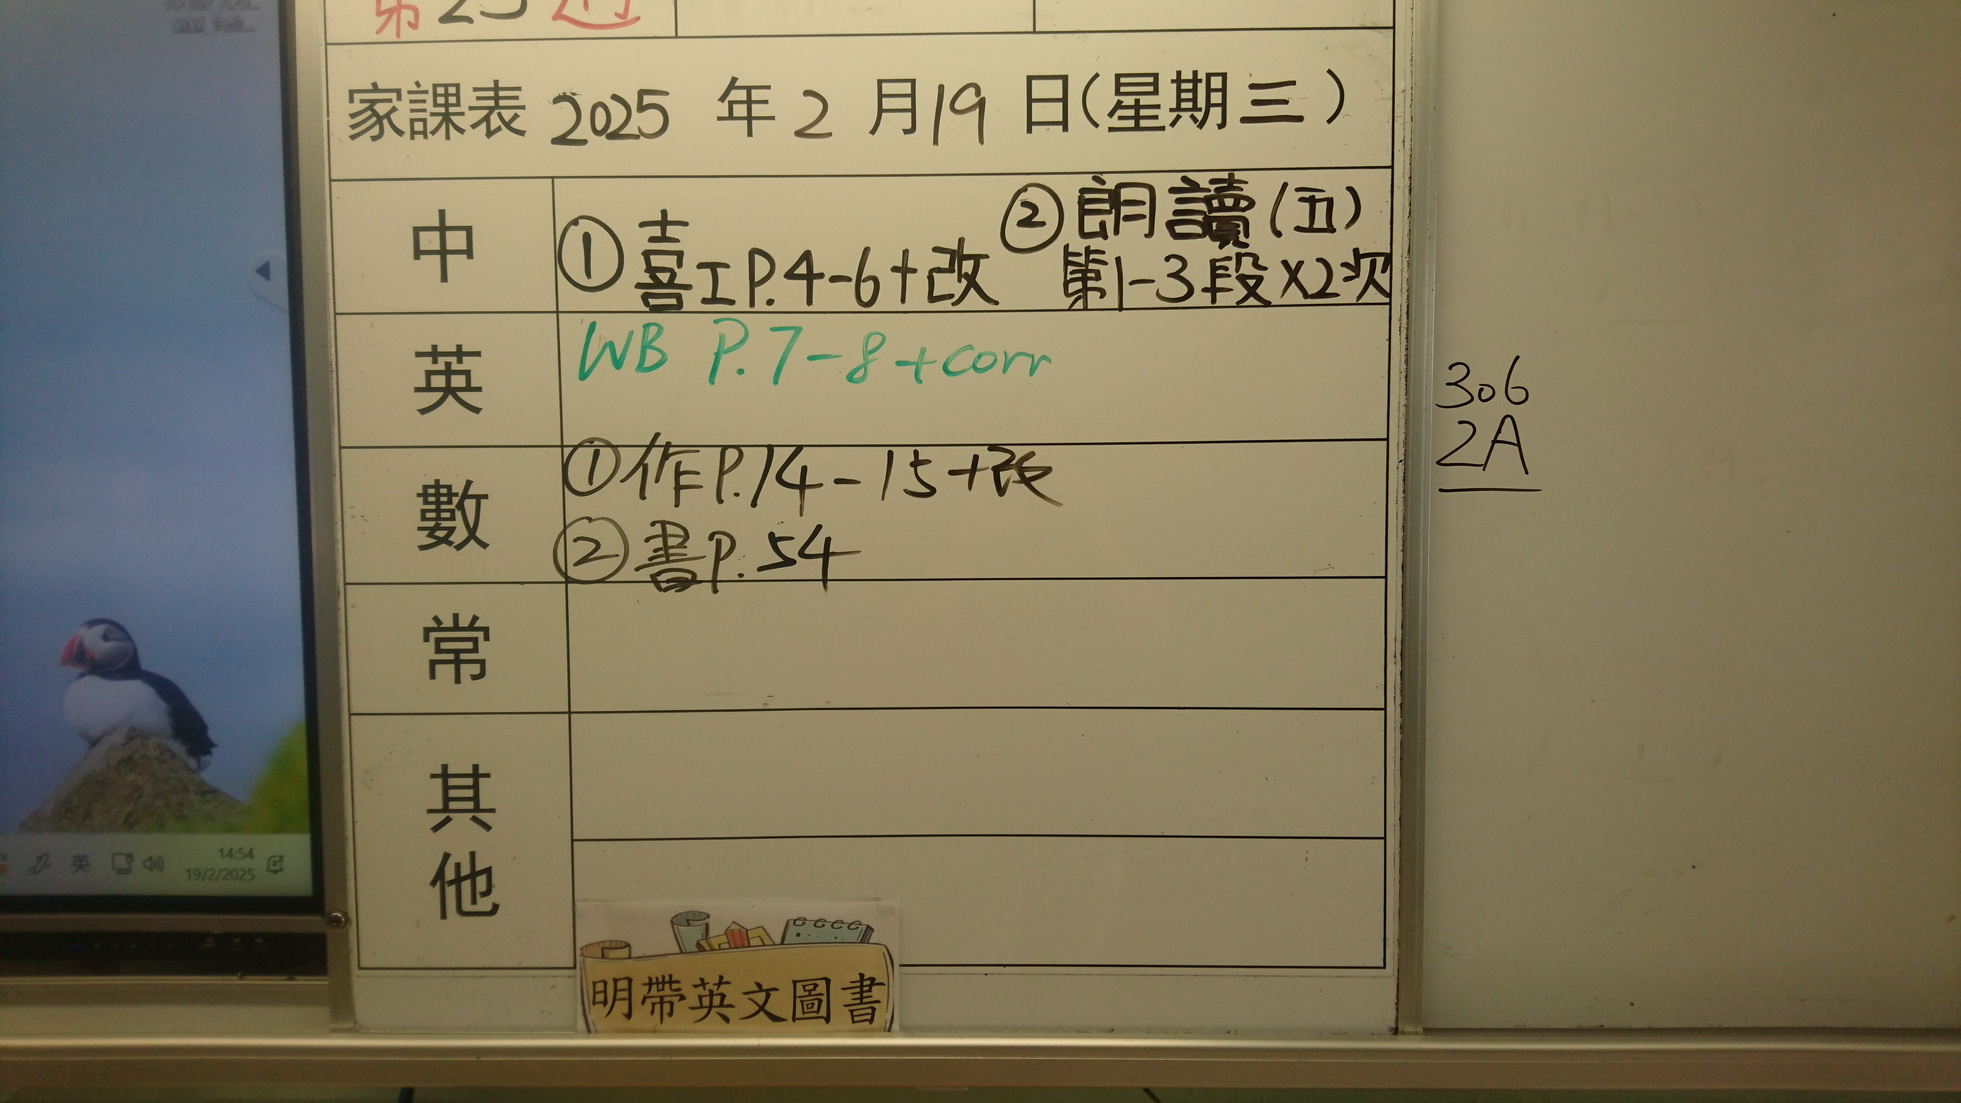 第23週
家課表 2025 年 2 月 19 日(星期三)
中
① 喜工P.4-6+改
② 朗讀(五)
第1-3段X2次
英
WB P.7-8+corr
數
①作P.14-15+改
②書P.54
常
其他
明帶英文圖書
306
2A
英
14:54
19/2/2025